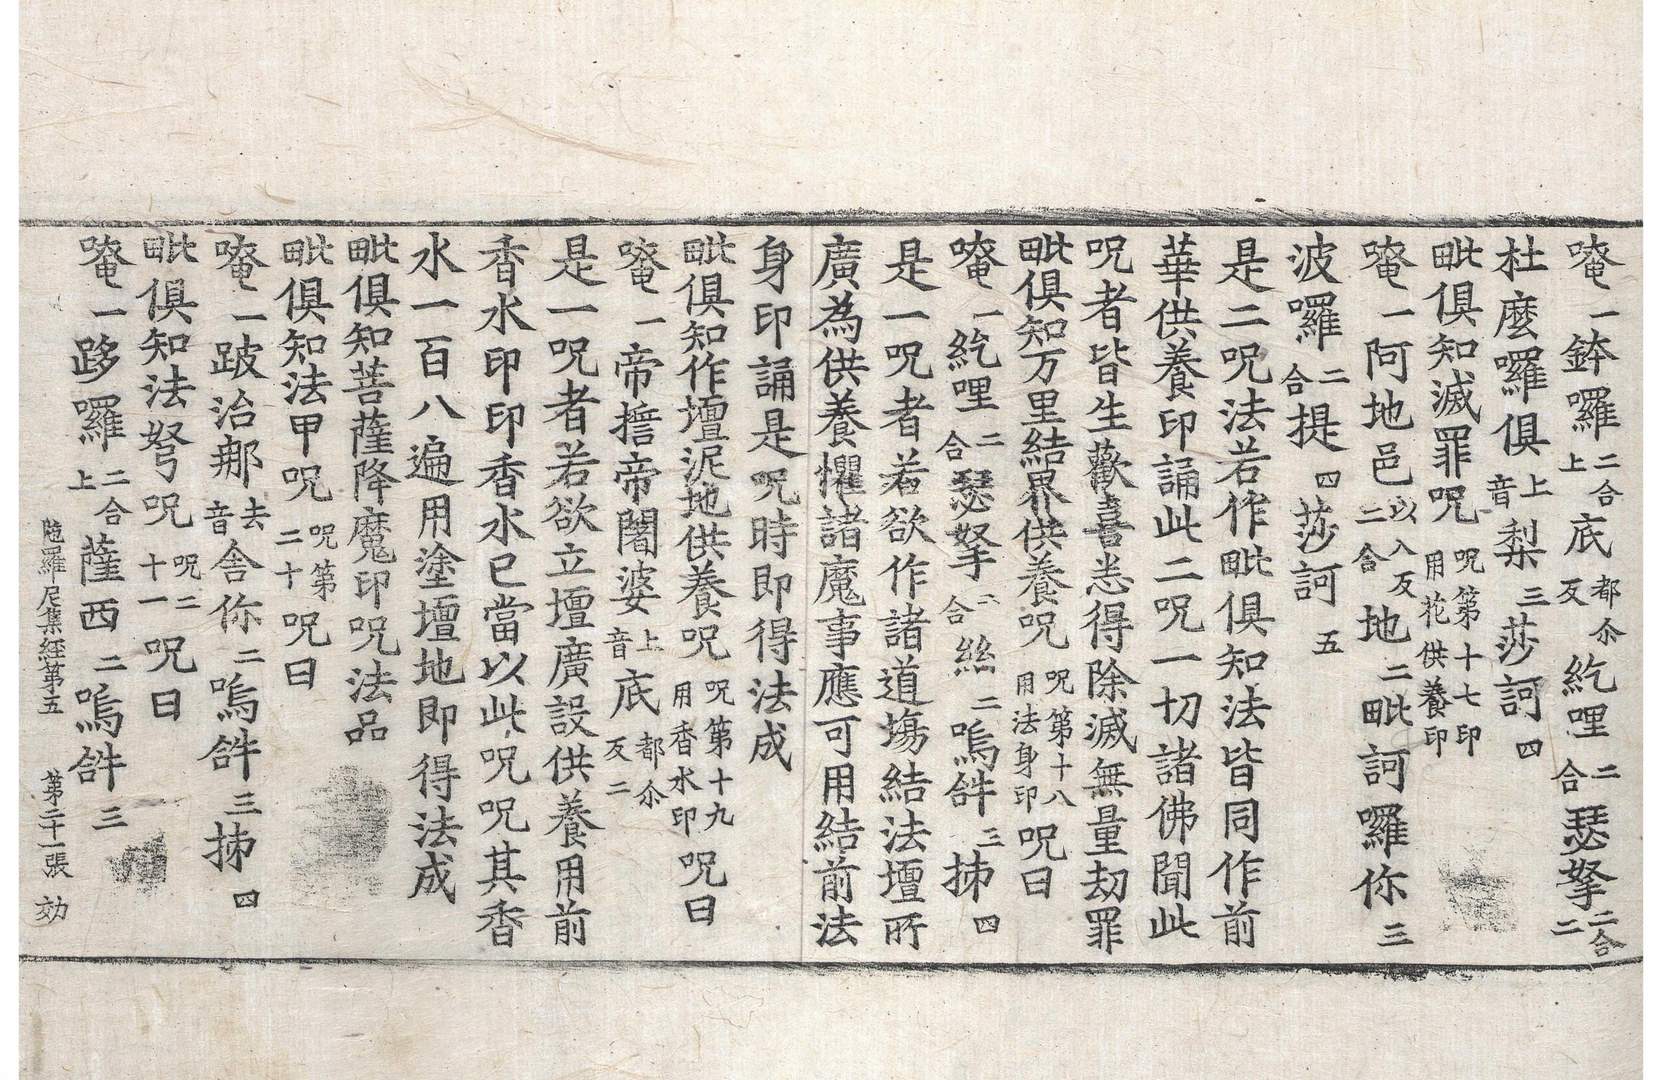 唵一鉢囉二合上底都尒反紇哩二合瑟拏二合二
杜麼囉俱上音梨三莎訶四
毗俱知滅罪呪呪第十七印用花供養印
唵一阿地邑以入反二合地二毗訶囉你三
波囉二合提四莎訶五
是二呪法若作毗俱知法皆同作前
華供養印誦此二呪一切諸佛聞此
呪者皆生歡喜悉得除滅無量劫罪
毗俱知万里結界供養呪呪第十八用法身印呪曰
唵一紇哩二合瑟拏二合絲二嗚𤙖三抹四
是一呪者若欲作諸道場結法壇所
廣為供養懼諸魔事應可用結前法
身印誦是呪時即得法成
毗俱知作壇泥地供養呪呪第十九用香水印呪曰
唵一帝擔帝闍婆上音底都尒反二
是一呪者若欲立壇廣設供養用前
香水印印香水已當以此呪呪其香
水一百八遍用塗壇地即得法成
毗俱知菩薩降魔印呪法品
毗俱知法甲呪呪第二十呪曰
唵一跛治那去音舍你二嗚𤙖三抹四
毗俱知法弩呪呪二十一呪曰
唵一跢囉二合上薩西二嗚𤙖三
陁羅尼集經第五 第二十一張 効